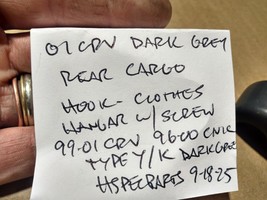 01 CRV DARK GREY
REAR CARGO
HOOK - CLOTHES
HANGAR W/ SCREW
99-01 CRV 96-00 CIVIC
TYPE Y/K DARK GREY
HSPECPARTS 9-18-25